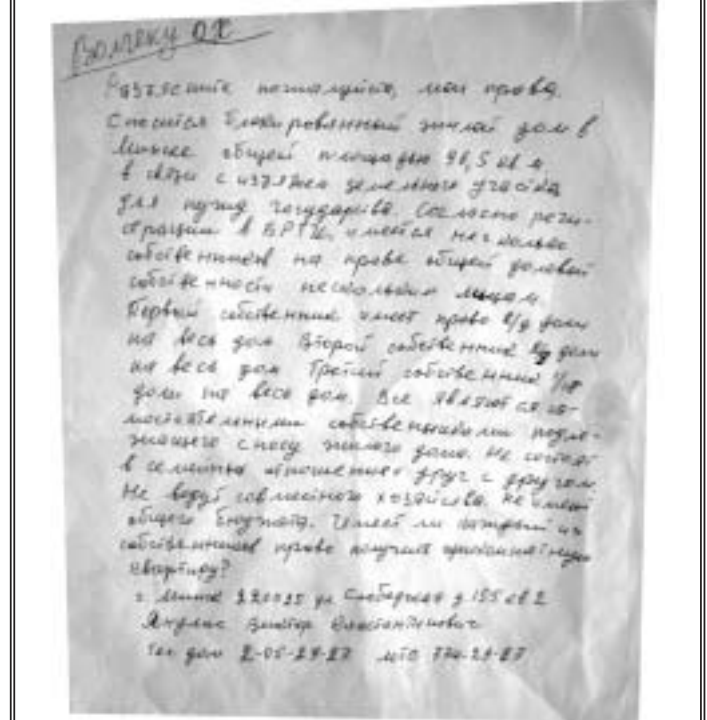 Волчеку ОХ
Разъясните пожалуйста, мои права.
Сносится блокированный жилой дом в
Минске общей площадью 98,5 кв м
в связи с изъятием земельного участка
для нужд государства. Согласно реги-
страции в БРТИ, имеется несколько
собственников на праве общей долевой
собственности нескольким лицам.
Первый собственник имеет право доли
на весь дом Второй собственник доли
на весь дом Третий собственник
доли на весь дом. Все являются са-
мостоятельными собственниками подле-
жащего сносу жилого дома. Не состоят
в семейных отношениях друг с другом
Не ведут совместного хозяйства. Не имеют
общего бюджета. Имеет ли каждый из
собственников право получить
квартиру?
г Минск 220025 ул Слободская д 155 кв 2
Виктор Константинович
Тел дом